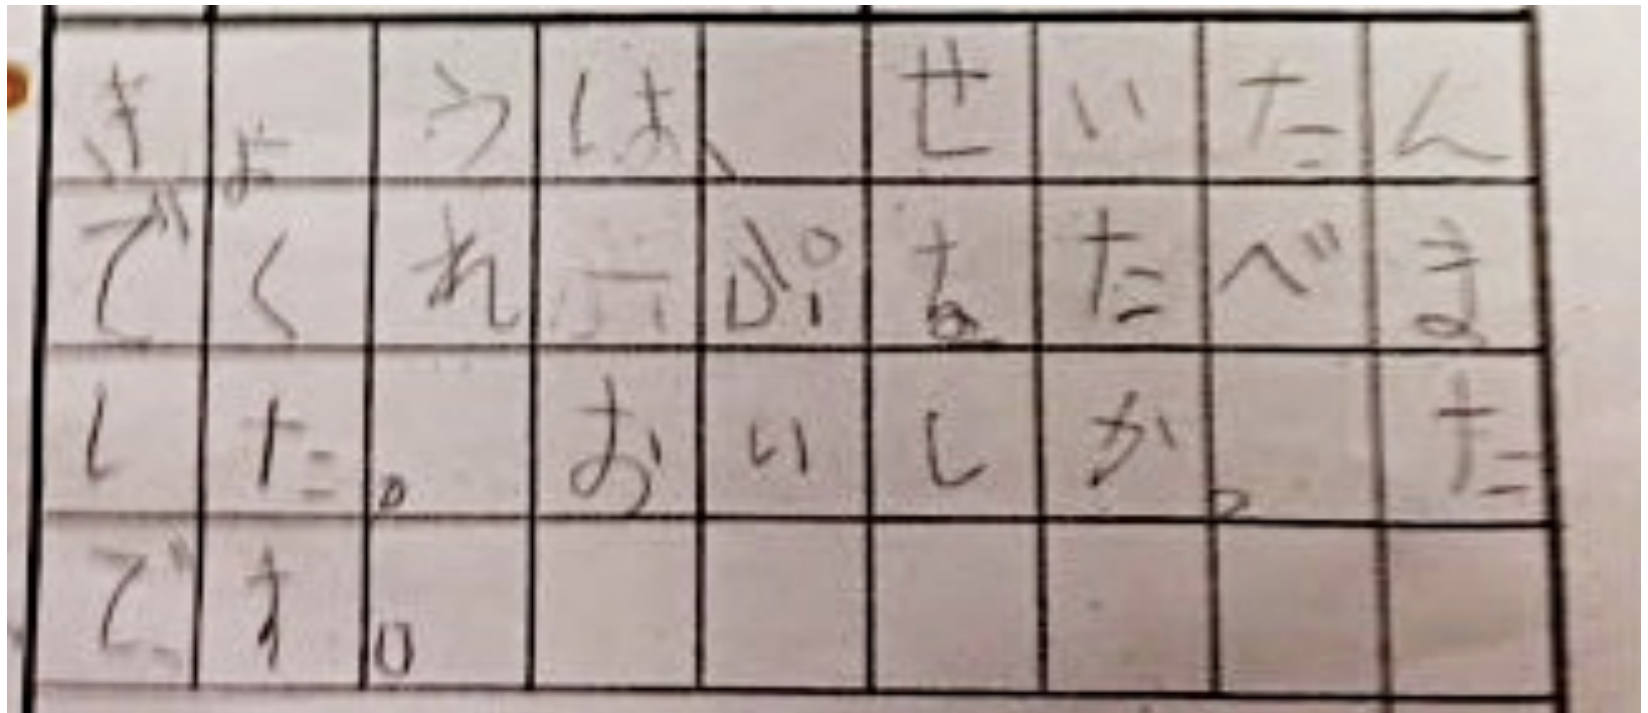 きょうは、せいたん
でくれーぷをたべま
した。おいしかった
です。